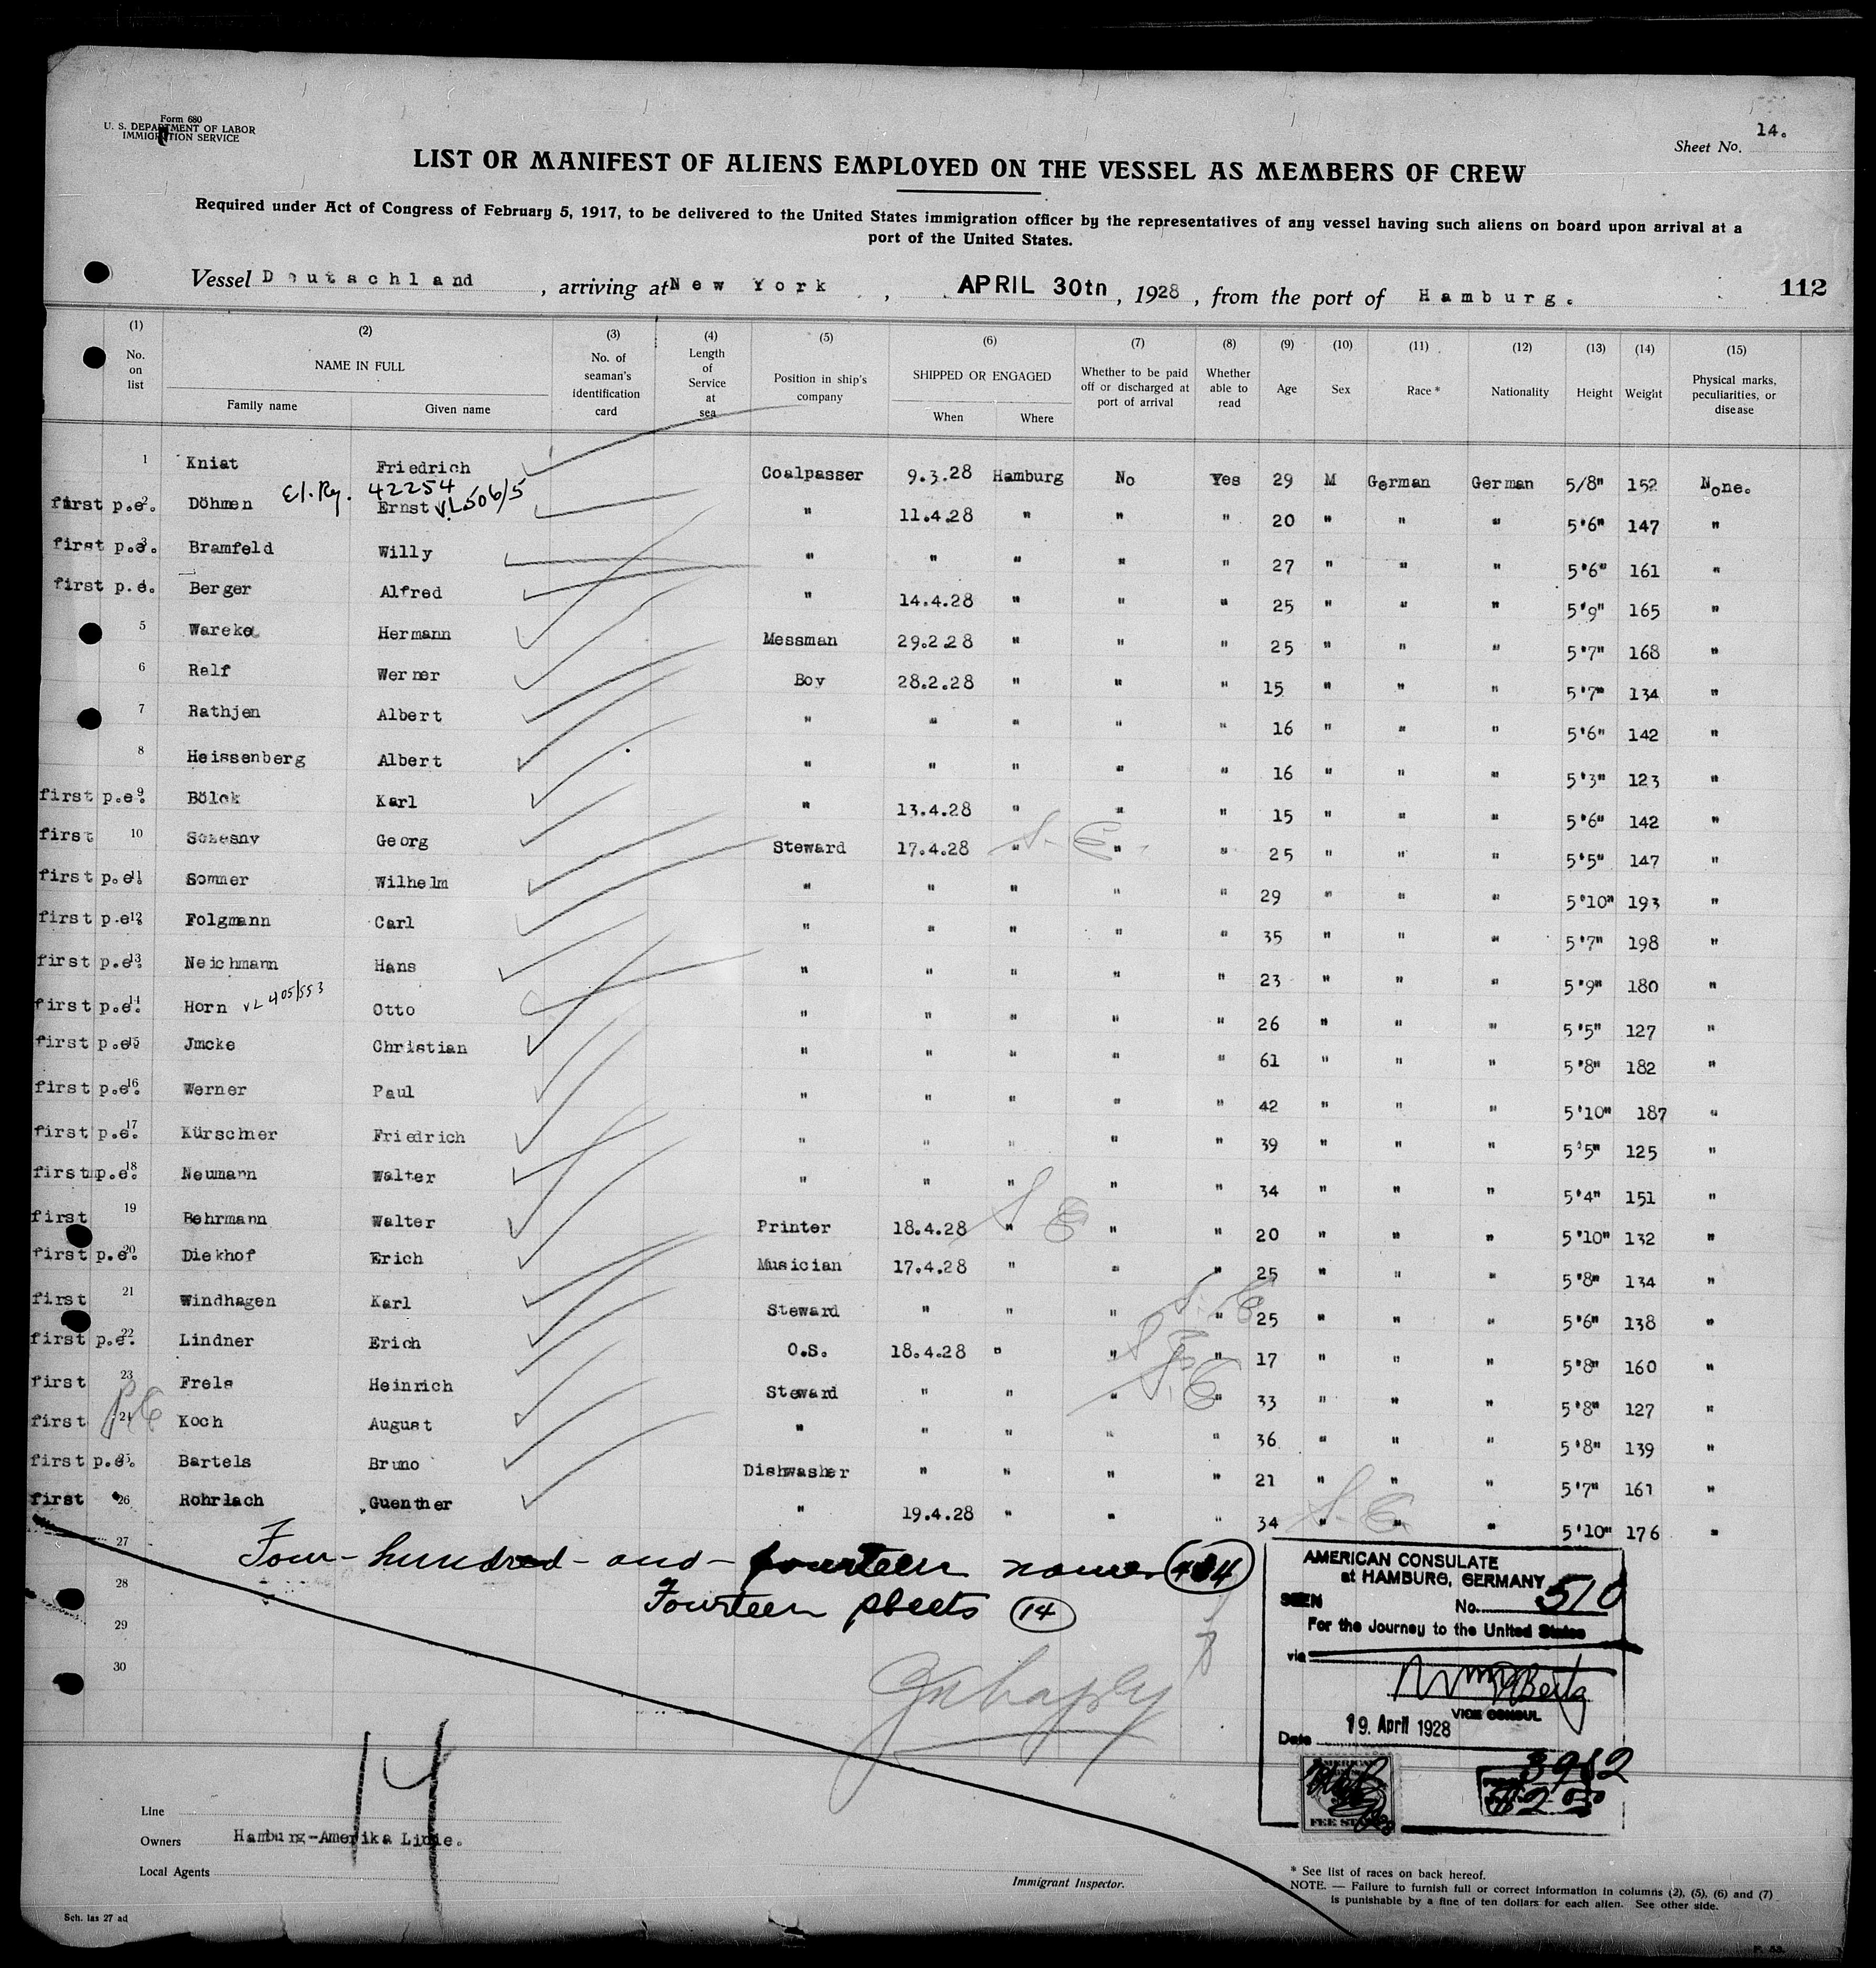 Form 680
U. S. DEPARTMENT OF LABOR
IMMIGRATION SERVICE
Sheet No. 14.
LIST OR MANIFEST OF ALIENS EMPLOYED ON THE VESSEL AS MEMBERS OF CREW
Required under Act of Congress of February 5, 1917, to be delivered to the United States immigration officer by the representatives of any vessel having such aliens on board upon arrival at a
port of the United States.
Vessel Deutschland , arriving at New York , APRIL 30th , 1928 , from the port of Hamburg. 112
(1) (2) (3) (4) (5) (6) (7) (8) (9) (10) (11) (12) (13) (14) (15)
No. on list NAME IN FULL Family name Given name No. of seaman's identification card Length of Service at sea Position in ship's company SHIPPED OR ENGAGED When Where Whether to be paid off or discharged at port of arrival Whether able to read Age Sex Race * Nationality Height Weight Physical marks, peculiarities, or disease
1 Kniat Friedrich Coalpasser 9.3.28 Hamburg No Yes 29 M German German 5/8" 152 None.
El. Ry. 42254
first p.e. 2 Döhmen Ernst VL506/5 " 11.4.28 " " " 20 " " " 5'6" 147 "
first p.e. 3 Bramfeld Willy " " " " " 27 " " " 5'6" 161 "
first p.e. 4 Berger Alfred " 14.4.28 " " " 25 " " " 5'9" 165 "
5 Wareke Hermann Messman 29.2.28 " " " 25 " " " 5'7" 168 "
6 Ralf Werner Boy 28.2.28 " " " 15 " " " 5'7" 134 "
7 Rathjen Albert " " " " " 16 " " " 5'6" 142 "
8 Heissenberg Albert " " " " " 16 " " " 5'3" 123 "
first p.e. 9 Bölck Karl " 13.4.28 " " " 15 " " " 5'6" 142 "
first 10 Scnesny Georg Steward 17.4.28 " " " 25 " " " 5'5" 147 "
first p.e. 11 Sommer Wilhelm " " " " " 29 " " " 5'10" 193 "
first p.e. 12 Folgmann Carl " " " " " 35 " " " 5'7" 198 "
first p.e. 13 Neichmann Hans " " " " " 23 " " " 5'9" 180 "
first p.e. 14 Horn VL 405/553 Otto " " " " " 26 " " " 5'5" 127 "
first p.e. 15 Jmcke Christian " " " " " 61 " " " 5'8" 182 "
first p.e. 16 Werner Paul " " " " " 42 " " " 5'10" 187 "
first p.e. 17 Kürschner Friedrich " " " " " 39 " " " 5'5" 125 "
first p.e. 18 Neumann Walter " " " " " 34 " " " 5'4" 151 "
first 19 Behrmann Walter Printer 18.4.28 " " " 20 " " " 5'10" 132 "
first p.e. 20 Diekhof Erich Musician 17.4.28 " " " 25 " " " 5'8" 134 "
first 21 Windhagen Karl Steward " " " " 25 " " " 5'6" 138 "
first p.e. 22 Lindner Erich O.S. 18.4.28 " " " 17 " " " 5'8" 160 "
first 23 Frels Heinrich Steward " " " " 33 " " " 5'8" 127 "
first 24 Koch August " " " " " 36 " " " 5'8" 139 "
first p.e. 25 Bartels Bruno Dishwasher " " " " 21 " " " 5'7" 161 "
first 26 Rohrlach Guenther " 19.4.28 " " " 34 " " " 5'10" 176 "
27
Four-hundred-and-fourteen names
28
Fourteen sheets 14
29
30
AMERICAN CONSULATE
at HAMBURG, GERMANY
SEEN No. 510
For the Journey to the United States
via
VICE CONSUL
Date 19. April 1928
3982
FEE STAMP
14
Line
Owners Hamburg-Amerika Linie.
Local Agents
Immigrant Inspector.
* See list of races on back hereof.
NOTE. — Failure to furnish full or correct information in columns (2), (5), (6) and (7)
is punishable by a fine of ten dollars for each alien. See other side.
Sch. las 27 ad